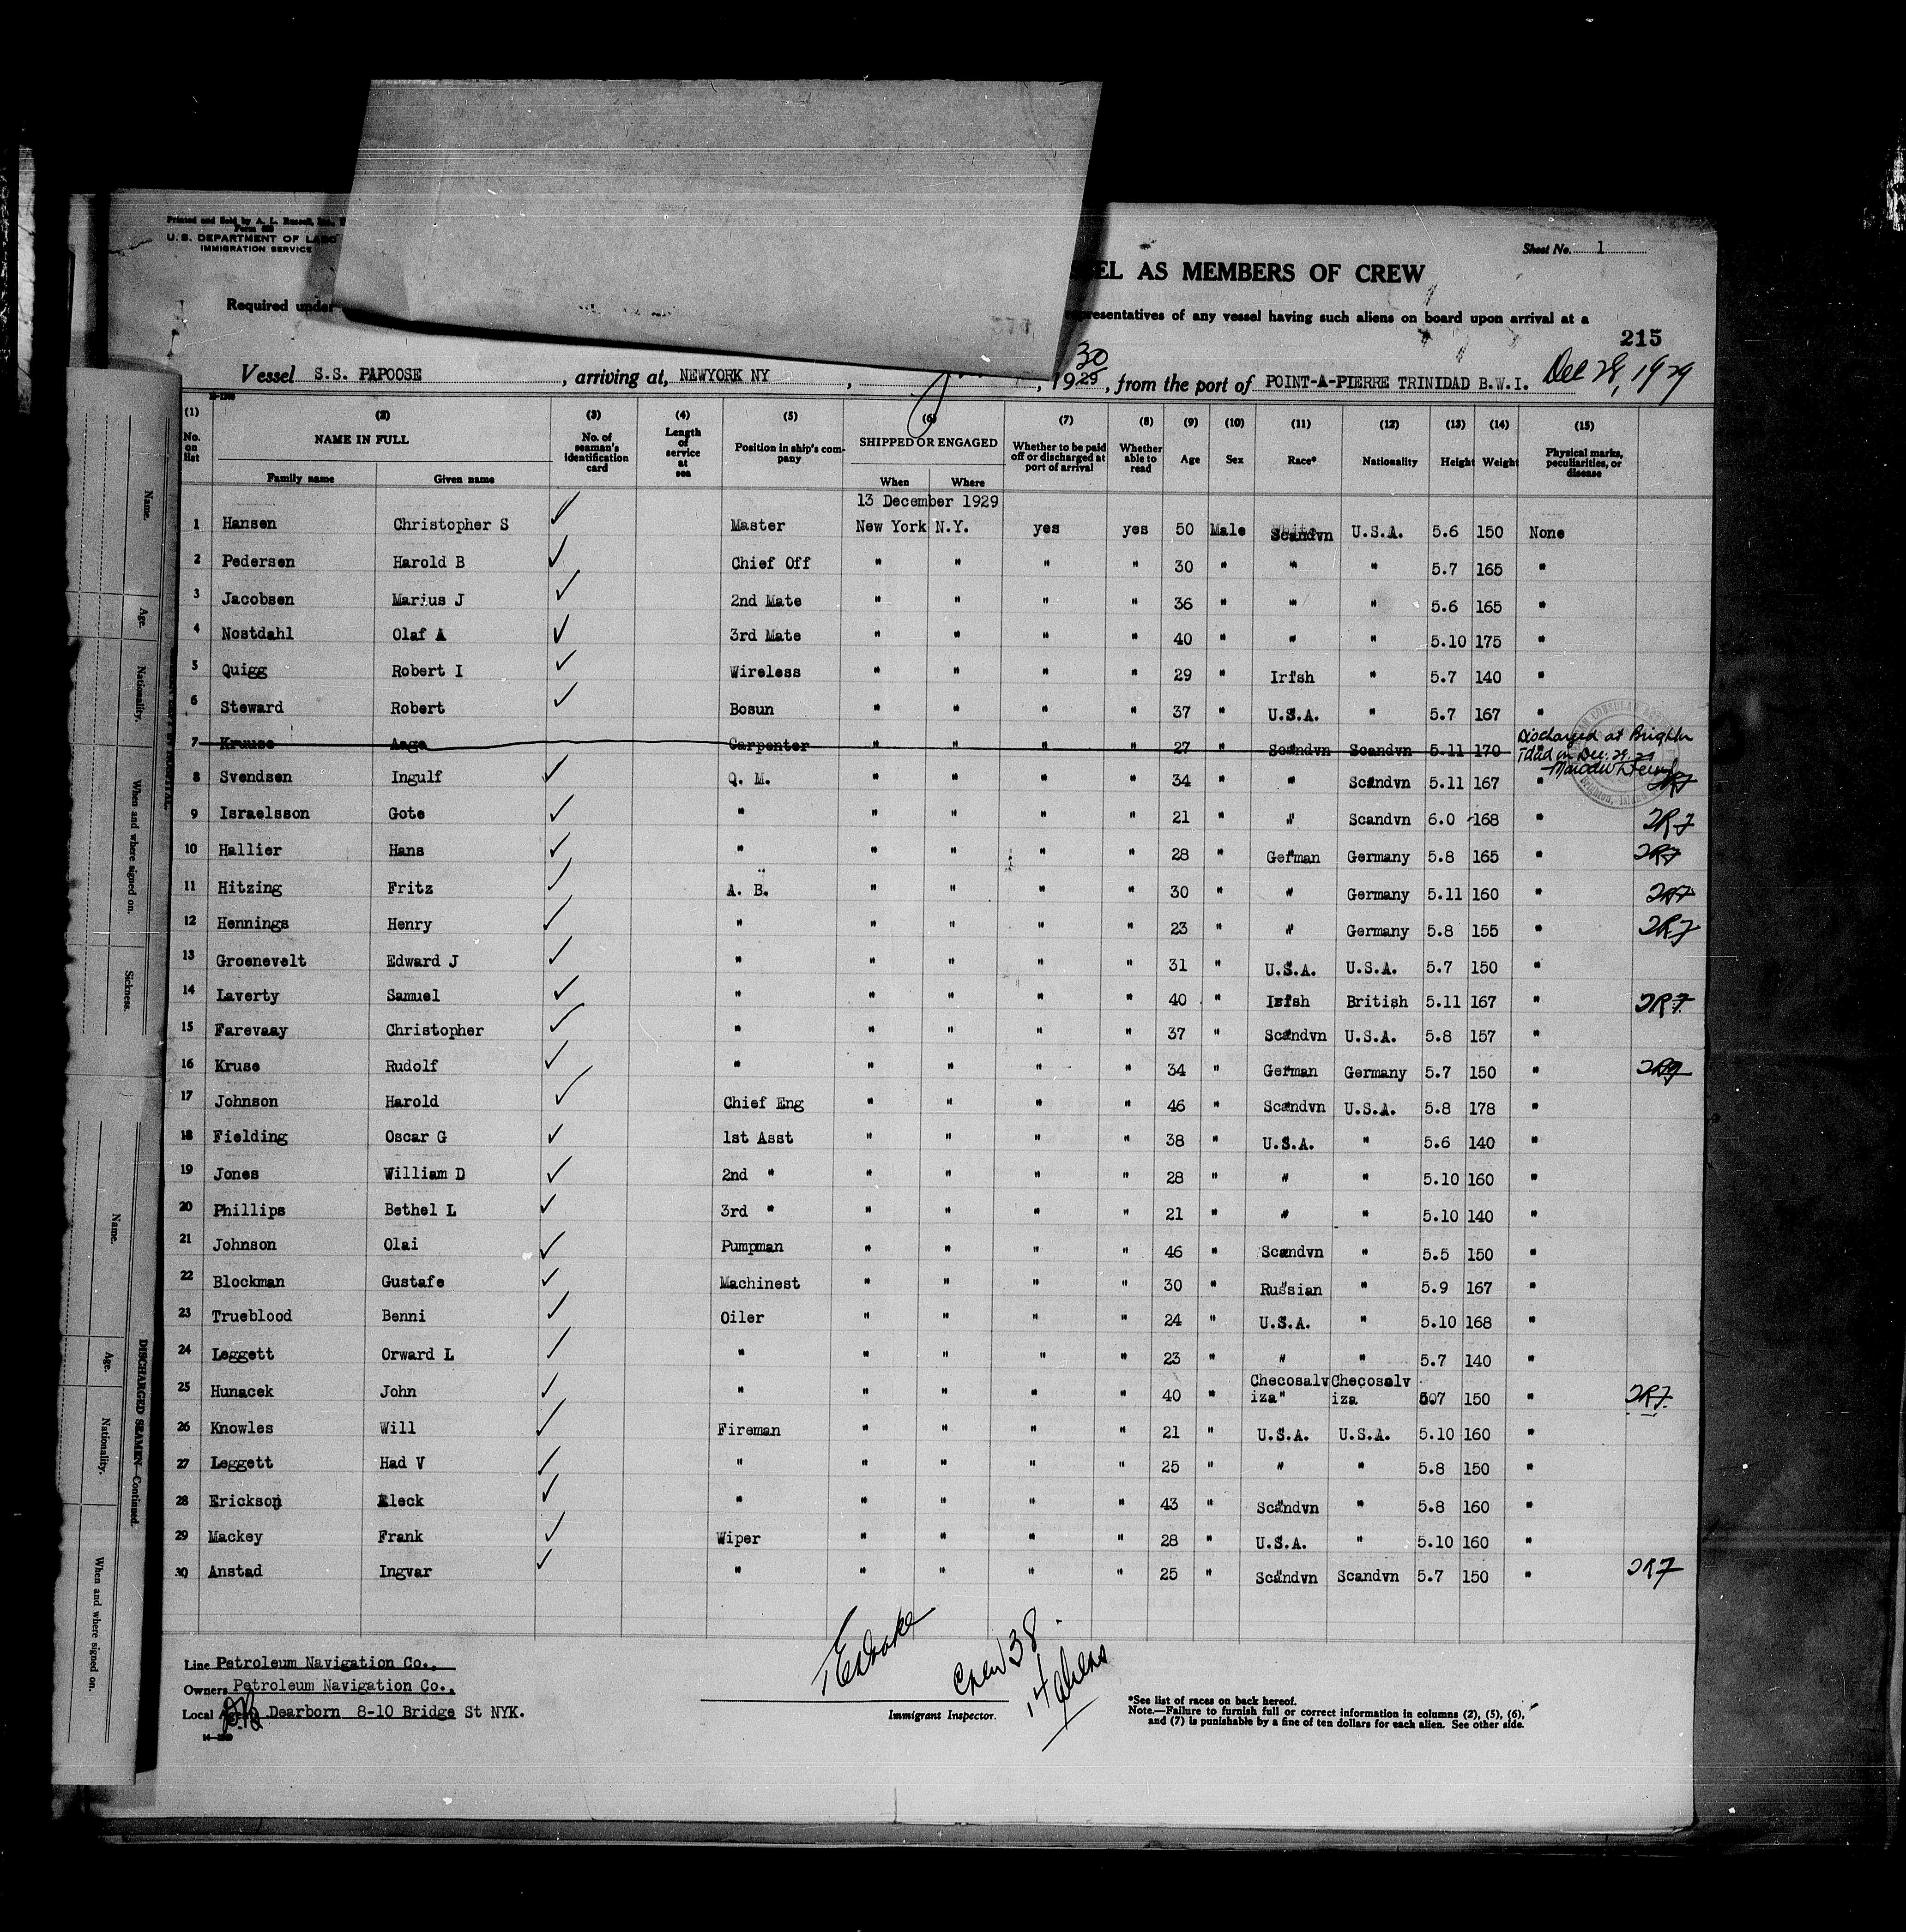 Printed and Sold by A. L. Russell, Inc.,
Form 689
U. S. DEPARTMENT OF LABO
IMMIGRATION SERVICE
Sheet No. 1
EL AS MEMBERS OF CREW
Required under
representatives of any vessel having such aliens on board upon arrival at a
215
Vessel S.S. PAPOOSE, arriving at, NEWYORK NY, 19 29 30, from the port of POINT-A-PIERRE TRINIDAD B.W.I. Dec 28, 1929
(1) (2) (3) (4) (5) (6) (7) (8) (9) (10) (11) (12) (13) (14) (15)
No. on list NAME IN FULL Family name Given name No. of seaman's identification card Length of service at sea Position in ship's company SHIPPED OR ENGAGED When Where Whether to be paid off or discharged at port of arrival Whether able to read Age Sex Race* Nationality Height Weight Physical marks, peculiarities, or disease
13 December 1929
1 Hansen Christopher S ✓ Master New York N.Y. yes yes 50 Male Scandvn U.S.A. 5.6 150 None
2 Pedersen Harold B ✓ Chief Off " " " " 30 " " " 5.7 165 "
3 Jacobsen Marius J ✓ 2nd Mate " " " " 36 " " " 5.6 165 "
4 Nostdahl Olaf A ✓ 3rd Mate " " " " 40 " " " 5.10 175 "
5 Quigg Robert I ✓ Wireless " " " " 29 " Irish " 5.7 140 "
6 Steward Robert ✓ Bosun " " " " 37 " U.S.A. " 5.7 167 "
7 Kruuse Aage Carpenter " " " " 27 " Scandvn Scandvn 5.11 170 " Discharged at Brighton Tdad in Dec. 29.29
8 Svendsen Ingulf ✓ Q. M. " " " " 34 " " Scandvn 5.11 167 "
9 Israelsson Gote ✓ " " " " " 21 " " Scandvn 6.0 168 "
10 Hallier Hans ✓ " " " " " 28 " German Germany 5.8 165 "
11 Hitzing Fritz ✓ A. B. " " " " 30 " " Germany 5.11 160 "
12 Hennings Henry ✓ " " " " " 23 " " Germany 5.8 155 "
13 Groenevelt Edward J ✓ " " " " " 31 " U.S.A. U.S.A. 5.7 150 "
14 Laverty Samuel ✓ " " " " " 40 " Irish British 5.11 167 "
15 Farevaay Christopher ✓ " " " " " 37 " Scandvn U.S.A. 5.8 157 "
16 Kruse Rudolf ✓ " " " " " 34 " German Germany 5.7 150 "
17 Johnson Harold ✓ Chief Eng " " " " 46 " Scandvn U.S.A. 5.8 178 "
18 Fielding Oscar G ✓ 1st Asst " " " " 38 " U.S.A. " 5.6 140 "
19 Jones William D ✓ 2nd " " " " " 28 " " " 5.10 160 "
20 Phillips Bethel L ✓ 3rd " " " " " 21 " " " 5.10 140 "
21 Johnson Olai ✓ Pumpman " " " " 46 " Scandvn " 5.5 150 "
22 Blockman Gustafe ✓ Machinest " " " " 30 " Russian " 5.9 167 "
23 Trueblood Benni ✓ Oiler " " " " 24 " U.S.A. " 5.10 168 "
24 Leggett Orward L ✓ " " " " " 23 " " " 5.7 140 "
25 Hunacek John ✓ " " " " " 40 " Checosalv iza Checosalv iza 507 150 "
26 Knowles Will ✓ Fireman " " " " 21 " U.S.A. U.S.A. 5.10 160 "
27 Leggett Had V ✓ " " " " " 25 " " " 5.8 150 "
28 Erickson Eleck ✓ " " " " " 43 " Scandvn " 5.8 160 "
29 Mackey Frank ✓ Wiper " " " " 28 " U.S.A. " 5.10 160 "
30 Anstad Ingvar ✓ " " " " " 25 " Scandvn Scandvn 5.7 150 "
Line Petroleum Navigation Co.,
Owners Petroleum Navigation Co.,
Local Agents Dearborn 8-10 Bridge St NYK.
14—1240
Crew 38
14 aliens
Immigrant Inspector.
*See list of races on back hereof.
Note.—Failure to furnish full or correct information in columns (2), (5), (6),
and (7) is punishable by a fine of ten dollars for each alien. See other side.
Name.
Age.
Nationality.
When and where signed on.
Sickness.
Name.
Age.
Nationality.
When and where signed on.
DISCHARGED SEAMEN—Continued.